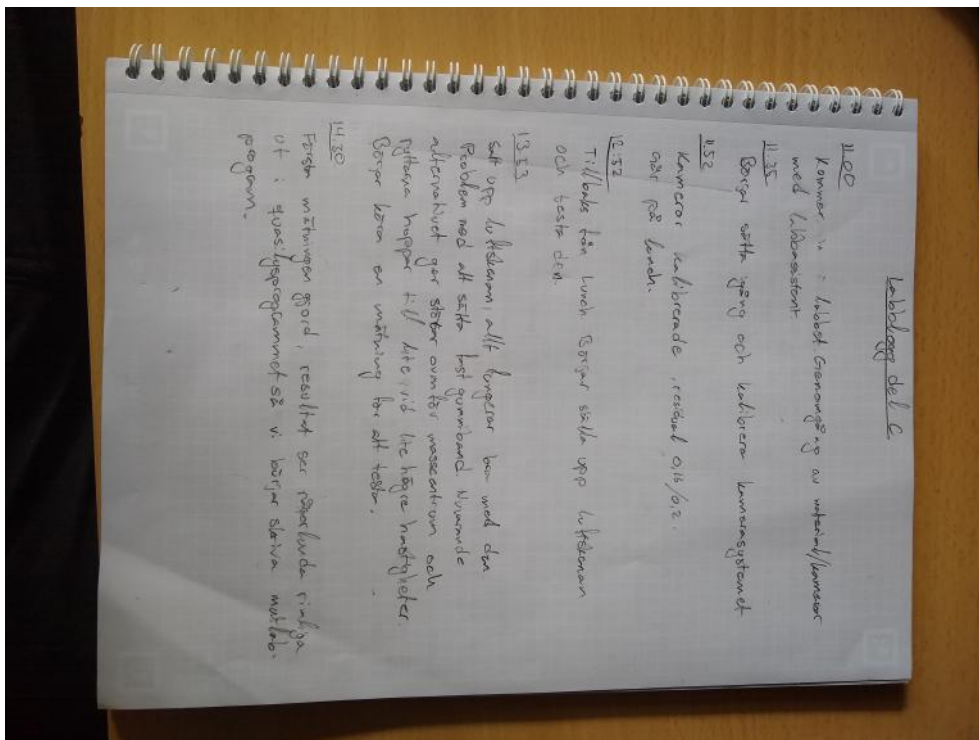 Labblogg del C
11.00
Kommer in i labbet. Genomgång av material/kameror
med labbassistent.
11.35
Börjar sätta igång och kalibrera kamerasystemet
11.52
Kameror kalibrerade, residual 0,16/0,2.
Går på lunch.
12.52
Tillbaks från lunch Börjar ställa upp luftskenan
och testa den.
13.53
Satt upp luftskenan, allt fungerar bra med den
Problem med att sätta fast gummiband. Nuvarande
alternativet ger stötar ovanför masscentrum och
ryttarna hoppar till lite vid lite högre hastigheter.
Börjar köra en mätning för att testa.
14.30
Första mätningen gjord, resultat ser någorlunda rimliga
ut i programmet så vi börjar skriva matlab-
program.